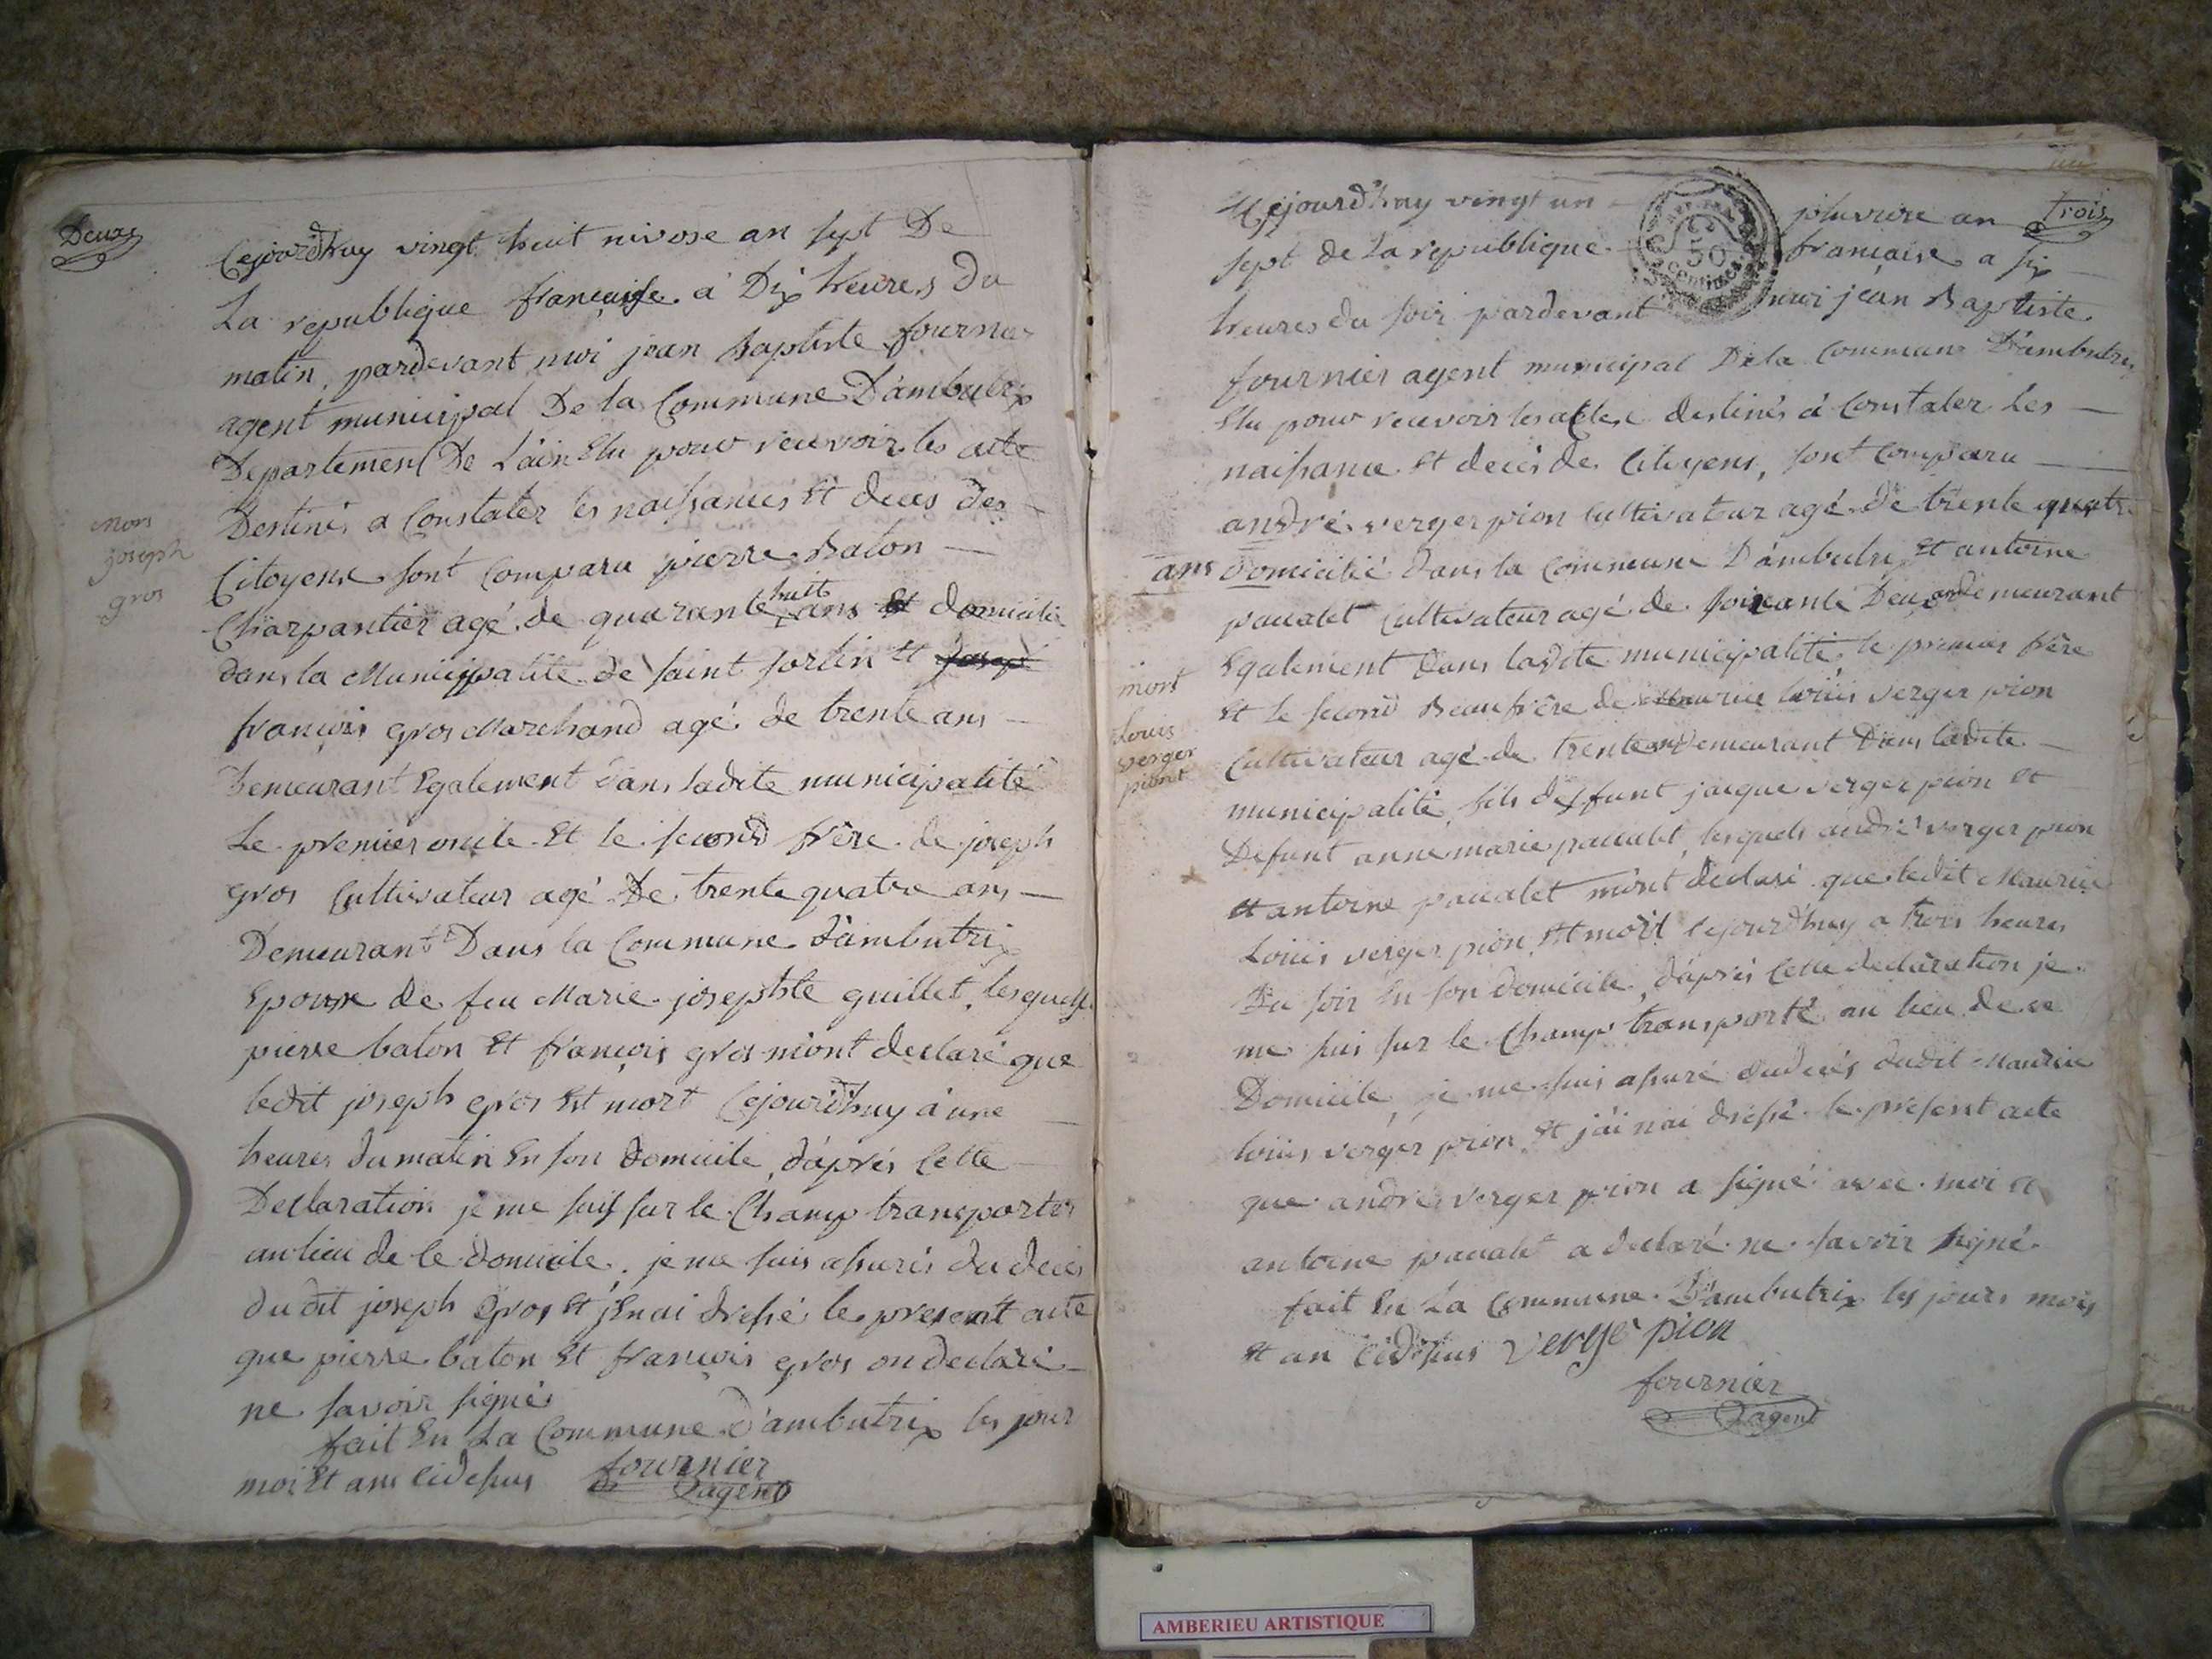 Deux
Cejourdhuy vingt huit nivose an sept De
La republique francaise a Dix heures Du
matin, pardevant moi jean baptiste fournier
agent municipal De la Commune D'ambutrix
Departement De L'ain Elu pour recevoir les acte
Destinés a Constater les naissances Et deces des
Citoyens sont Comparu pierre Baton
Charpantier agé de quarante huit ans Et domicilié
dans la Municipalité de saint sorlin Et joseph
françois gros Marchand agé de trente ans
Demeurant Egalement dans ladite municipalité
Le premier oncle Et le second frêre de joseph
gros Cultivateur agé De trente quatre ans
Demeurant Dans la Commune d'ambutrix
Epoux de feu Marie josephte guillet, lesquels
pierre baton Et françois gros m'ont declaré que
ledit joseph gros Est mort Cejourd'huy a une
heures du matin En son domicile, d'aprés Cette
Declaration je me suis sur le Champ transporter
au lieu de ce domicile, je me suis assurés du deces
du dit joseph gros Et j'En ai dressé le present acte
que pierre baton Et françois gros on declaré
ne savoir signés
fait En La Commune d'ambutrix les jour
moi Et ans cidessus fournier
agent
mort
joseph
gros
trois
50
centimes
Cejourd'huy vingt un pluviose an
sept de La republique française a six
heures du soir pardevant moi jean Baptiste
fournier agent municipal De la Commune D'ambutrix
Elu pour recevoir les actes destinés a Constater Les
naissance Et deces de Citoyens, sont Comparu
andré verger pion Cultivateur agé de trente quatre
ans Domicilié dans la Commune D'ambutrix Et antoine
pacalet Cultivateur agé de soixante Deux ans demeurant
Egalement dans ladite municipalité, le premier frêre
Et le second Beaufrêre de Maurice loüis verger pion
Cultivateur agé de trente ans Demeurant Dans ladite
municipalité, fils deffunt jacque verger pion Et
Defunt anne marie pacalet, lesquels andré verger pion
Et antoine pacalet m'ont declaré que ledit Maurice
Loüis verger pion Est mort Cejourd'huy a trois heures
Du soir En son domicile, d'aprés Cette declaration je
me suis sur le Champ transporté au lieu de ce
Domicile, je me suis assuré dudecés dudit Maurice
loüis verger pion, Et j'ai nai dressé le present acte
que andré verger pion a signé avec moi Et
antoine pacalet a declaré ne savoir signé
fait En La Commune D'ambutrix les jours mois
Et an cidessus vergé pion
fournier
agent
mort
Louis
verger
piont
AMBERIEU ARTISTIQUE